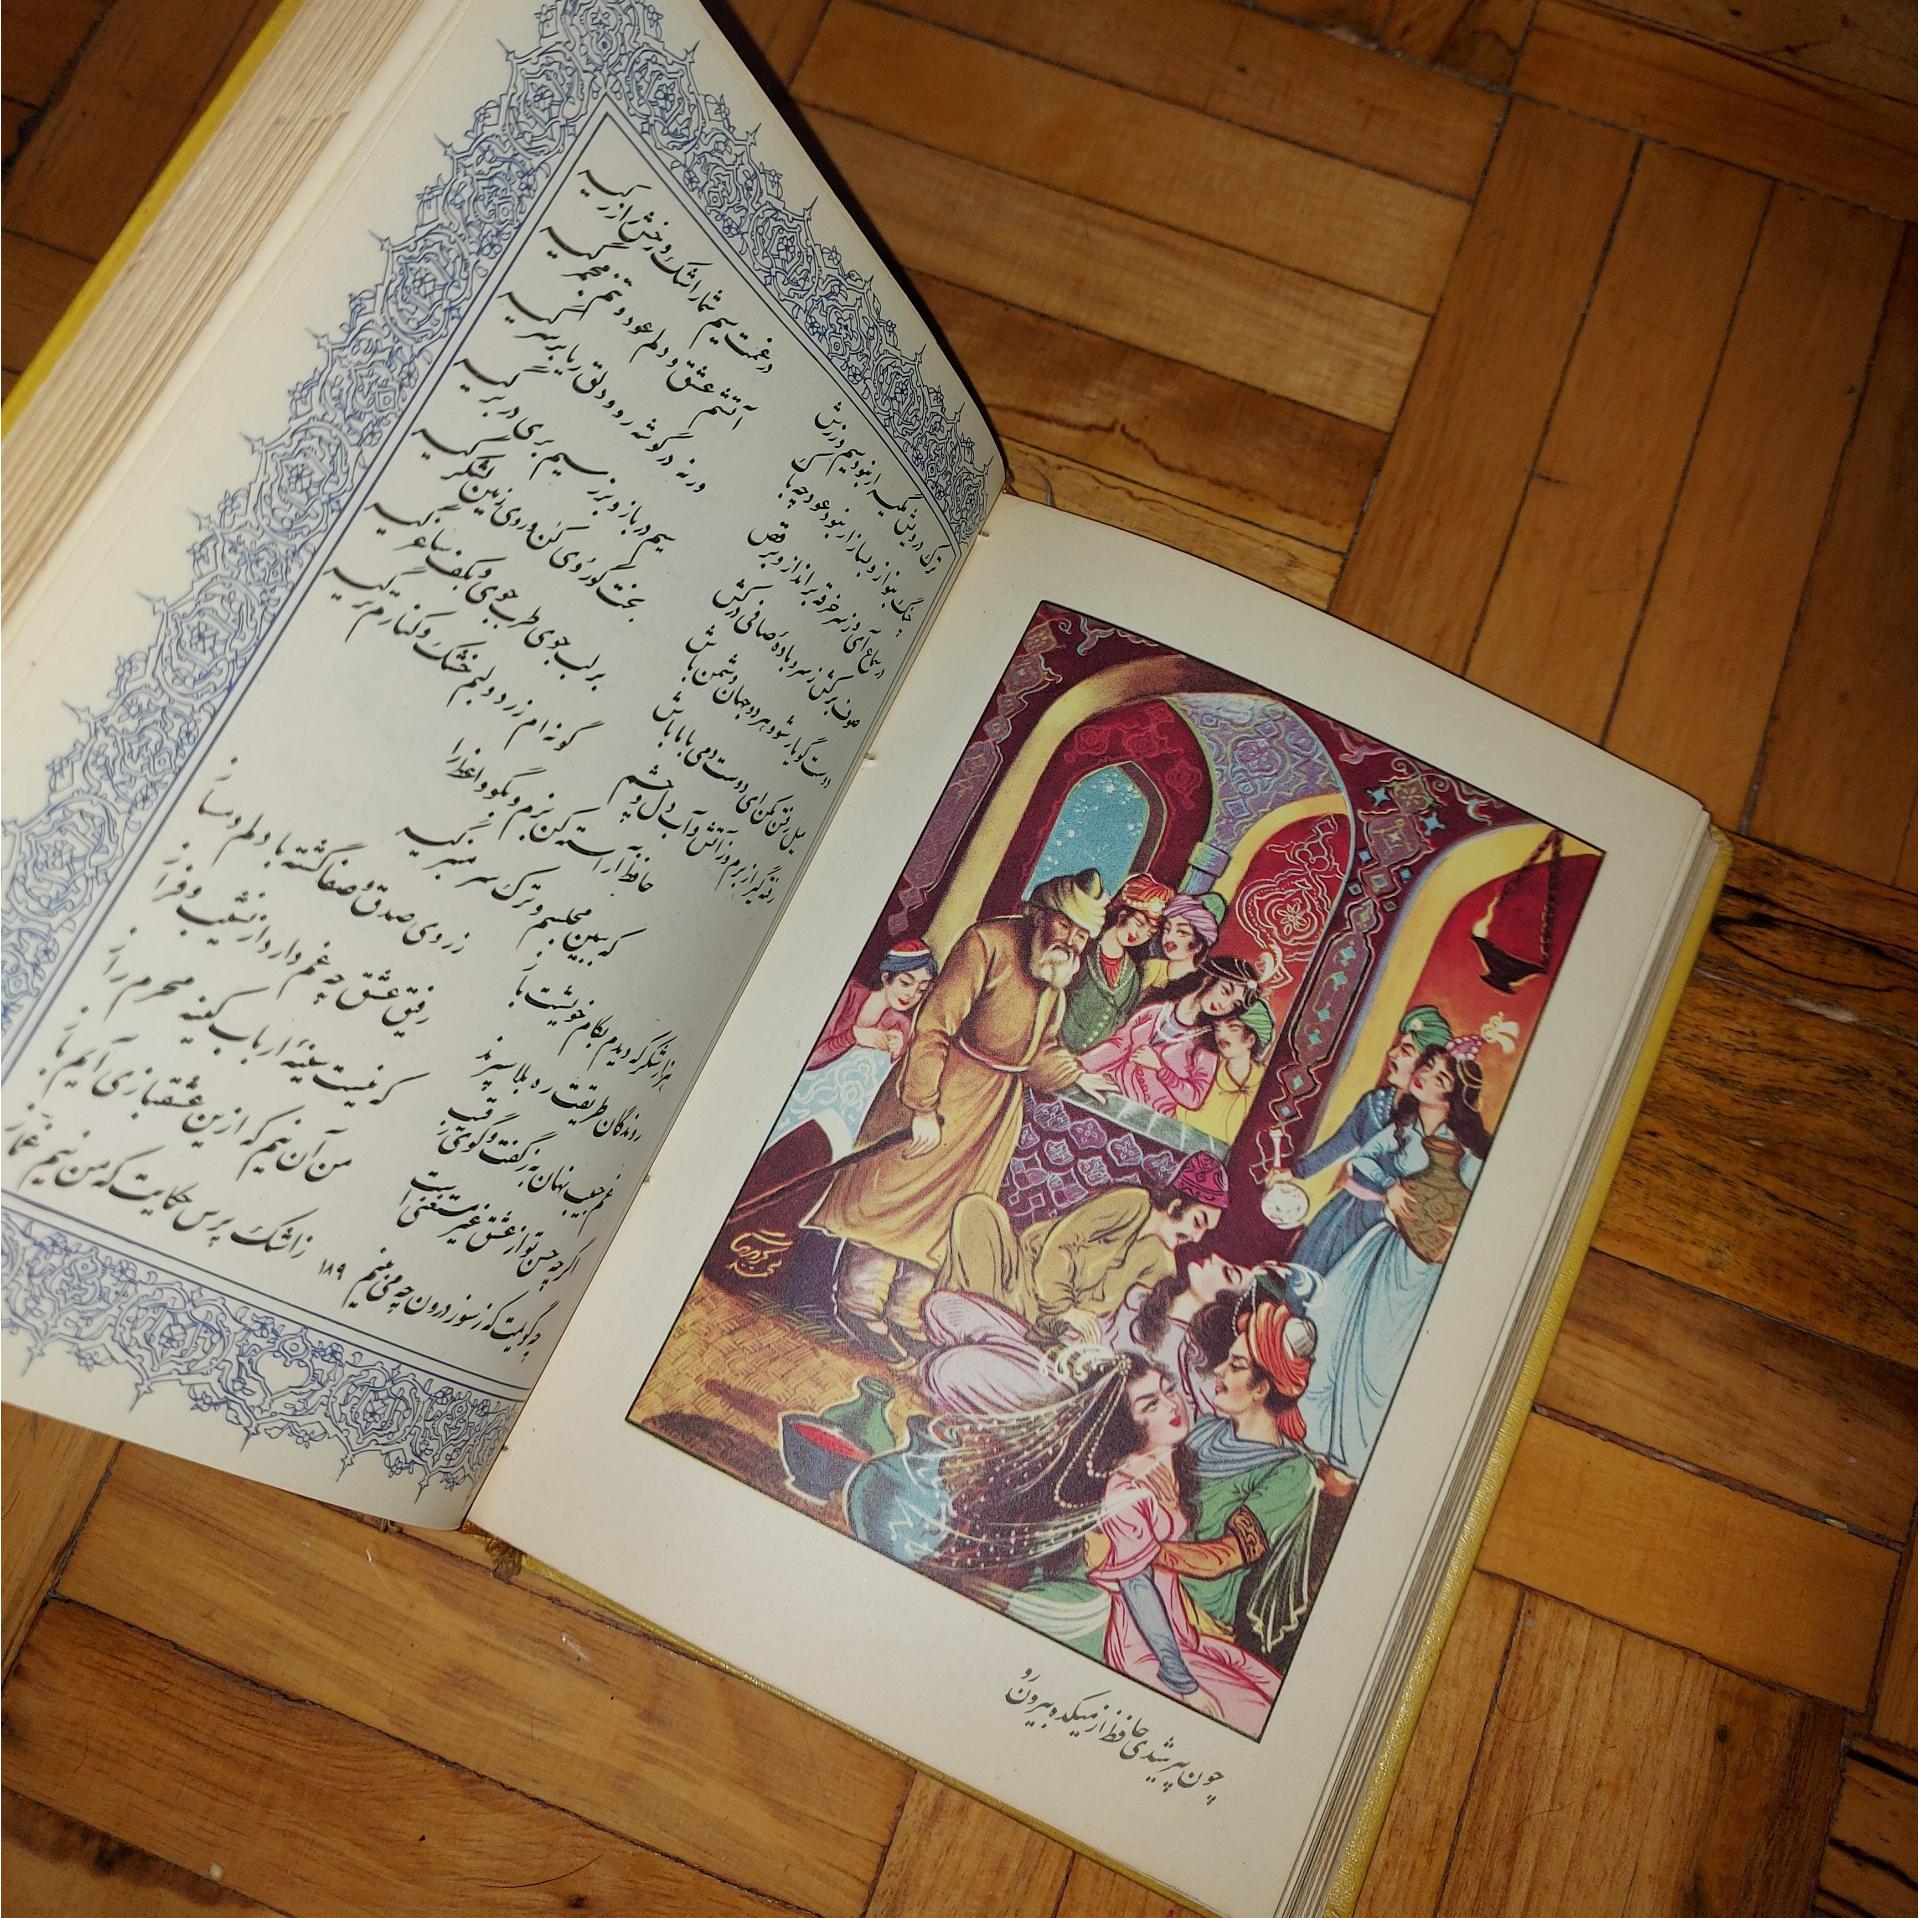 ترک درویش مگیر ار نبود سیم و زرش در غمت سیم شمار اشک و رخش را زر گیر
چنگ بنواز و بساز ار نبود عود چه باک آتشم عشق و دلم عود و تنم مجمر گیر
در سماع آی و ز سر خرقه برانداز و برقص ورنه در گوشه رو و دلق ریا بر سر گیر
صوف برکش ز سر و بادهٔ صافی درکش سیم درباز و بزر سیم بری در بر گیر
دوست گو یار شو و هر دو جهان دشمن باش بخت گو روی کن و روی زمین لشکر گیر
میل رفتن مکن ای دوست دمی با ما باش بر لب جوی طرب جوی و بکف ساغر گیر
رفته گیر از برم وز آتش و آب دل و چشم گونه ام زرد و لبم خشک و کنارم تر گیر
حافظ آراسته کن بزم و بگو واعظ را
که ببین مجلسم و ترک سر منبر گیر
هزار شکر که دیدم بکام خویشت باز ز روی صدق و صفا گشته با دلم دمساز
روندگان طریقت ره بلا سپرند رفیق عشق چه غم دارد از نشیب و فراز
غم حبیب نهان به ز گفت و گوی رقیب که نیست سینهٔ ارباب کینه محرم راز
اگر چه حسن تو از عشق غیر مستغنی است من آن نیم که ازین عشقبازی آیم باز
چه گویمت که ز سوز درون چه می بینم ز اشک پرس حکایت که من نیم غماز
۱۸۹
چون پیر شدی حافظ از میکده بیرون رو